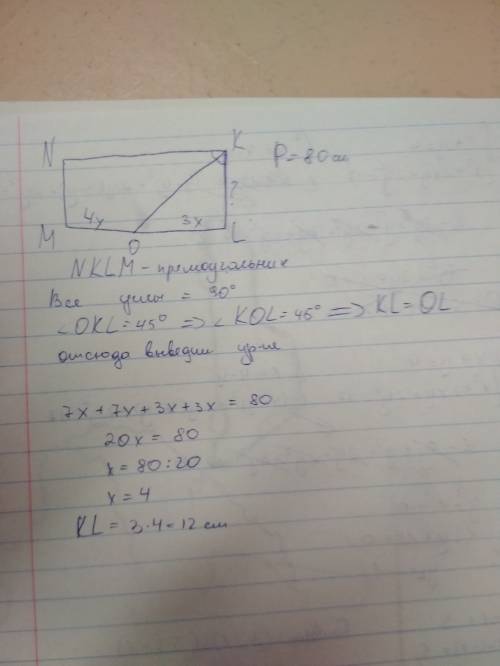 N K P = 80 см
?
4x 3x
M O L
NKLM - прямоугольник
Все углы = 90°
∠OKL = 45° => ∠KOL = 45° => KL = OL
отсюда выведим ур-ие
7x + 7x + 3x + 3x = 80
20x = 80
x = 80 : 20
x = 4
KL = 3 · 4 = 12 см